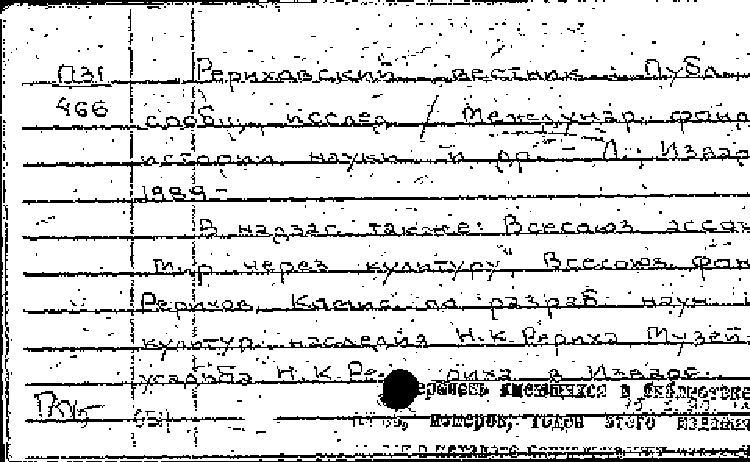 П31 Рериховский вестник : Публ.,
466 сообщ., исслед. / Междунар. фонд
истории науки и др. - Л.; Извар
1989-
В надзаг. также: Всесоюз. ассоц.
"Мир через культуру", Всесоюз. фон
Рерихов, Комис. по разраб. науч.
культур. наследия Н.К.Рериха, Музей-
усадьба Н.К.Ре риха в Изваре.
имеющихся в библиотеке
номеров, годов этого издания